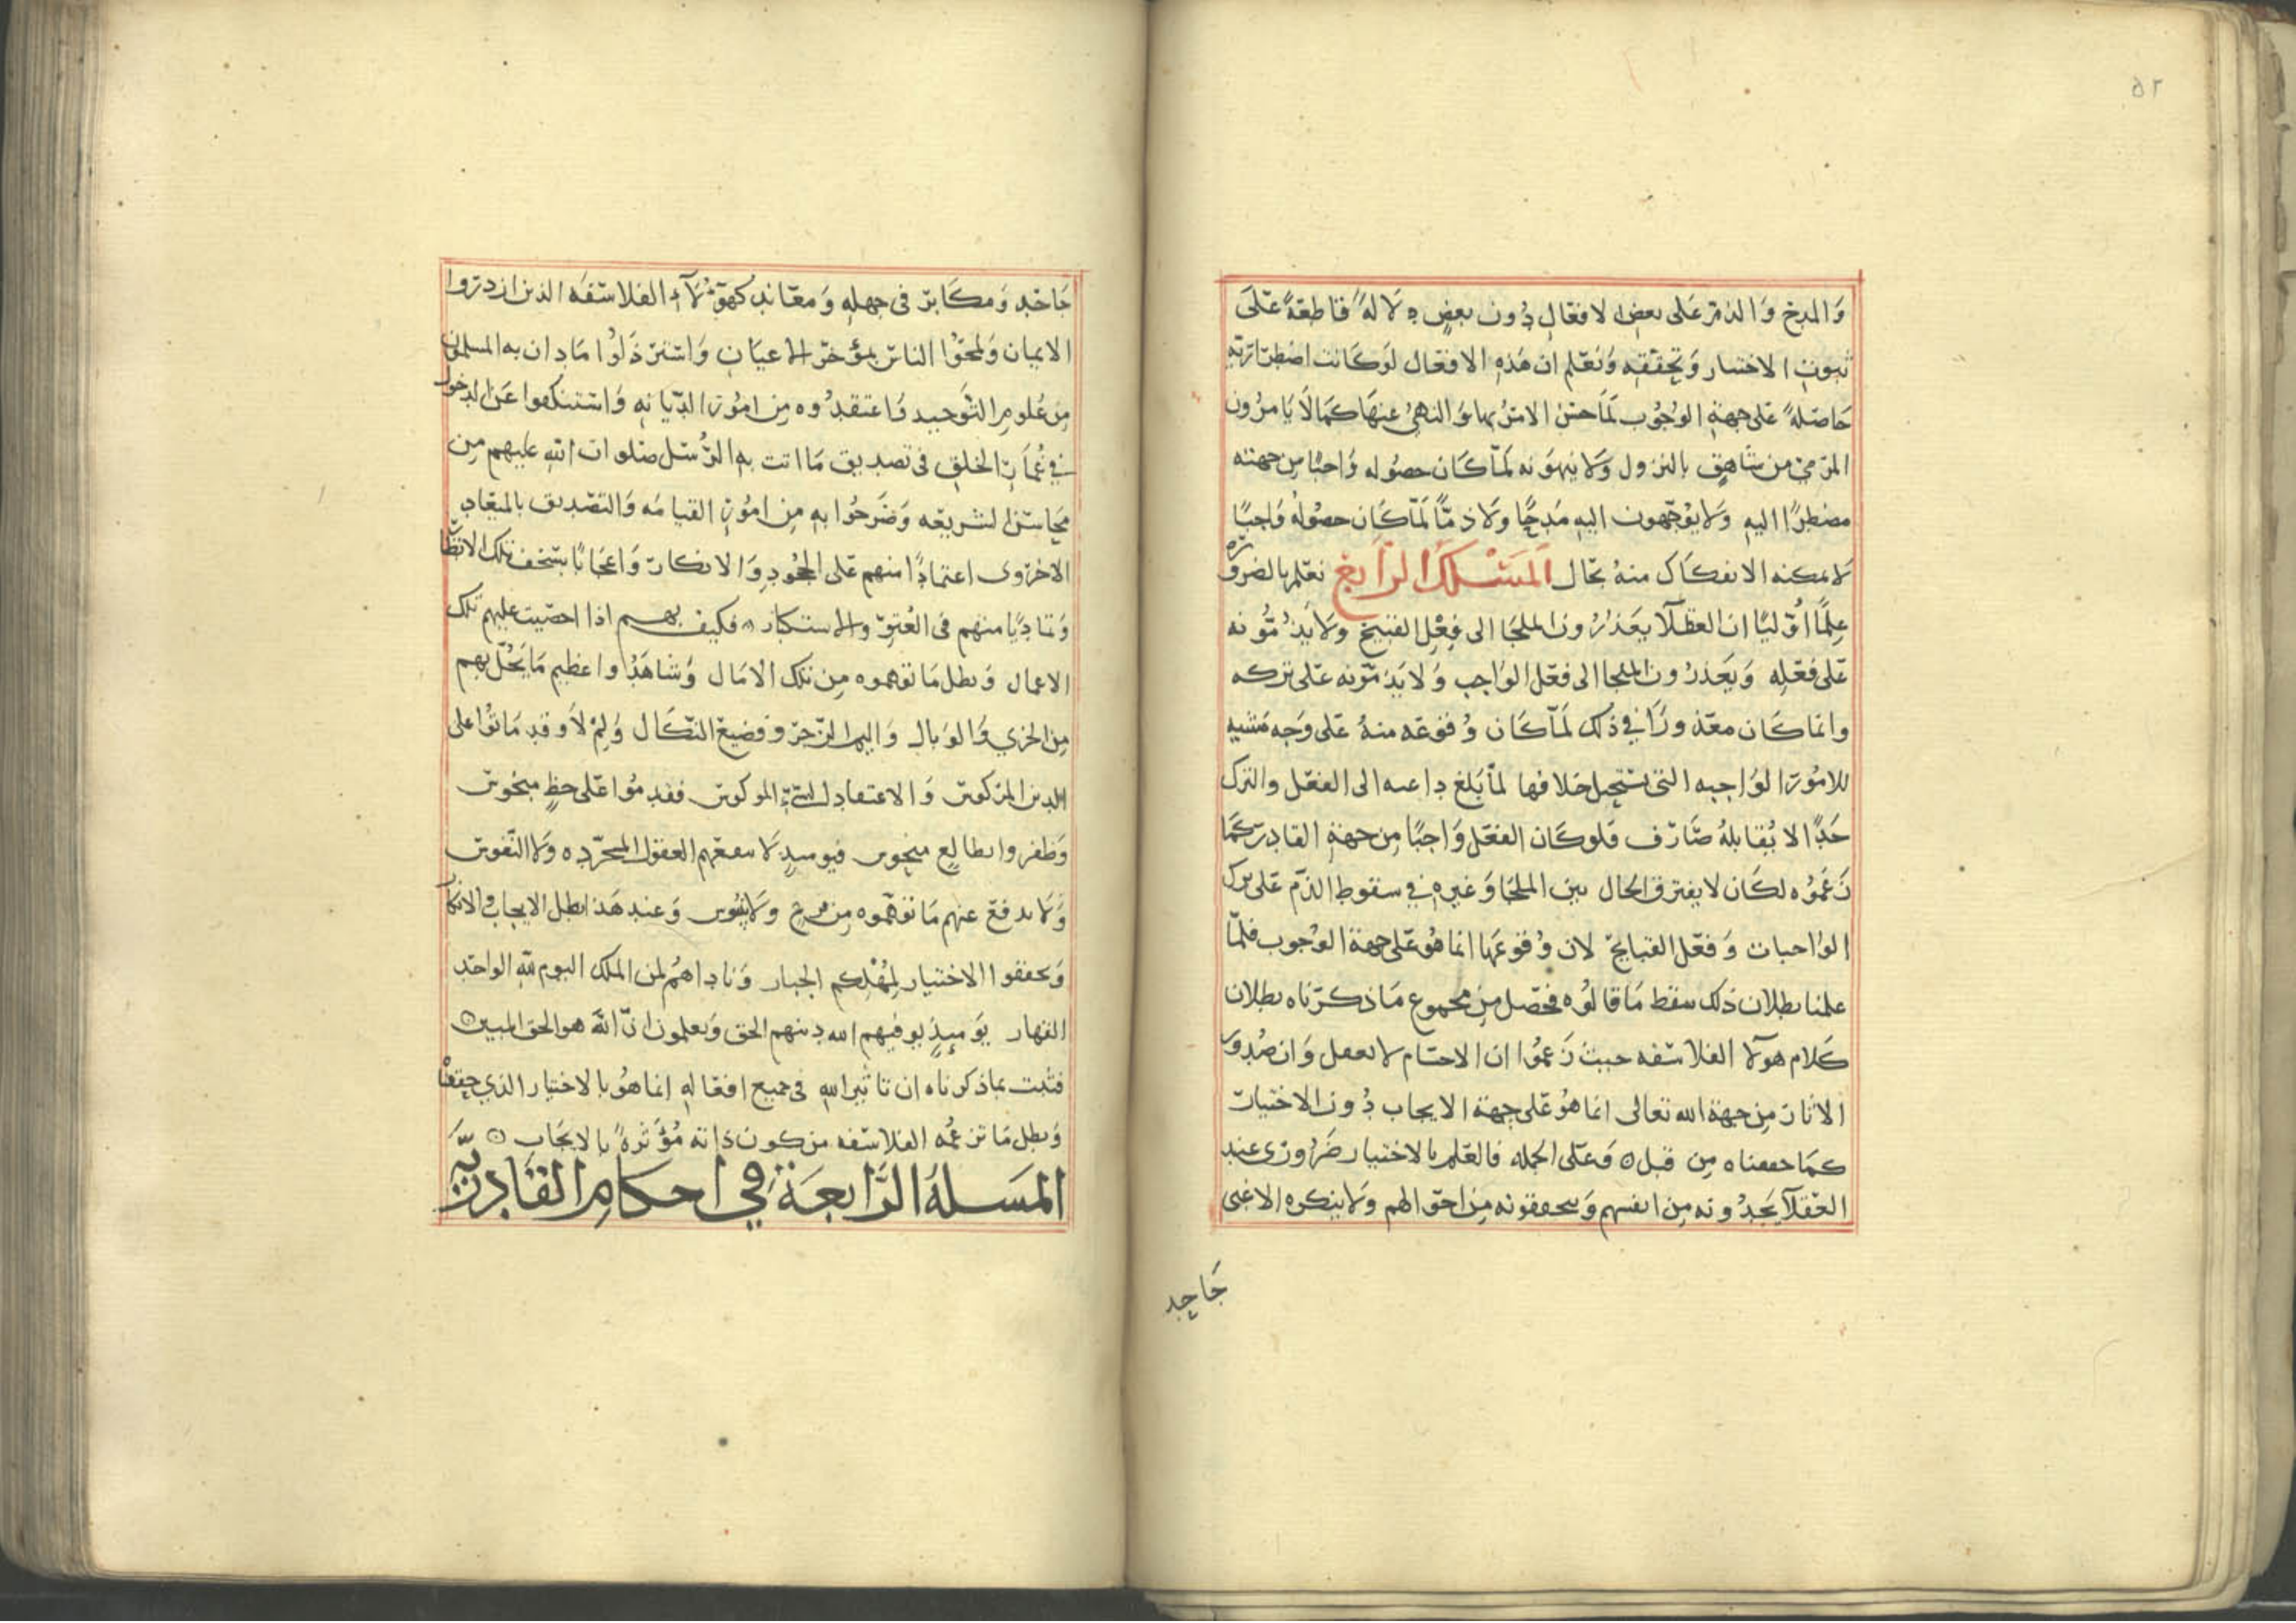 ٥٢
والمدح والذم على بعض الافعال دون بعض دلالة قاطعة على
ثبوت الاختيار وتحققه ونعلم ان هذه الافعال لو كانت اضطرارية
حاصلة على جهة الوجوب لما حسن الامر بها والنهي عنها كما لا يامرون
المرمي من شاهق بالنزول ولا ينهونه لما كان حصوله واجبا من جهته
مضطرا اليه ولا يوجهون اليه مدحا ولا ذما لما كان حصوله واجبا
لا يمكنه الانفكاك منه بحال المسلك الرابع نعلم بالضرورة
علما اوليا ان العقلا يعذرون الملجا الى فعل القبيح ولا يذمونه
على فعله ويعذرون الملجا الى فعل الواجب ولا يذمونه على تركه
وانما كان معذورا في ذلك لما كان وقوعه منه على وجه مشبه
للامور الواجبه التي يستحيل خلافها لما بلغ داعيه الى الفعل والترك
حدا لا يقابله صارف فلو كان الفعل واجبا من جهة القادر كما
زعموه لكان لا يفترق الحال بين الملجا وغيره في سقوط الذم على ترك
الواجبات وفعل القبايح لان وقوعها انما هو على جهة الوجوب فلما
علمنا بطلان ذلك سقط ما قالوه فحصل من مجموع ما ذكرناه بطلان
كلام هولا الفلاسفه حيث زعموا ان الاجسام لا تعقل وان صدور
الاثار من جهة الله تعالى انما هو على جهة الايجاب دون الاختيار
كما حققناه من قبل ۝ وعلى الجمله فالعلم بالاختيار ضروري عند
العقلا يجدونه من انفسهم ويتحققونه من احوالهم ولا ينكره الا غبي
جاحد
جاحد ومكابر في جهله ومعاند كهؤلآء الفلاسفه الذين ازدروا
الايمان ولمحوا الناس بمؤخر الاعيان واسترذلوا ما دان به المسلمون
من علوم التوحيد واعتقدوه من امور الديانه واستنكفوا عن الدخول
في غمار الخلق في تصديق ما اتت به الرسل صلوات الله عليهم من
محاسن الشريعه وصرحوا به من امور القيامه والتصديق بالميعاد
الاخروي اعتمادا منهم على الجحود والانكار واعجابا بسخف تلك الانظار
وتماديا منهم في العتو والاستكبار فكيف بهم اذا احصيت عليهم تلك
الاعمال وبطل ما توهموه من تلك الامال وشاهدوا عظيم ما يحل بهم
من الخزي والوبال واليم الزجر وفضيع النكال ولم لا وقد ماتوا على
الدين المركوس والاعتقاد الموكوس فقدموا على حظ مبخوس
وظفروا بطالع منحوس فيوميذ لا تنفعهم العقول المجرده ولا النفوس
ولا يدفع عنهم ما توهموه من وعند هذا بطل الايجاب والانكار
وتحققوا الاختيار لمهلكهم الجبار وناداهم لمن الملك اليوم لله الواحد
القهار يوميذ يوفيهم الله دينهم الحق ويعلمون ان الله هو الحق المبين ۝
فثبت بما ذكرناه ان تاثير الله في جميع افعاله انما هو بالاختيار الذي حققناه
وبطل ما تزعمه الفلاسفه من كون ذاته مؤثرة بالايجاب ۝
المسلة الرابعة في احكام القادرية